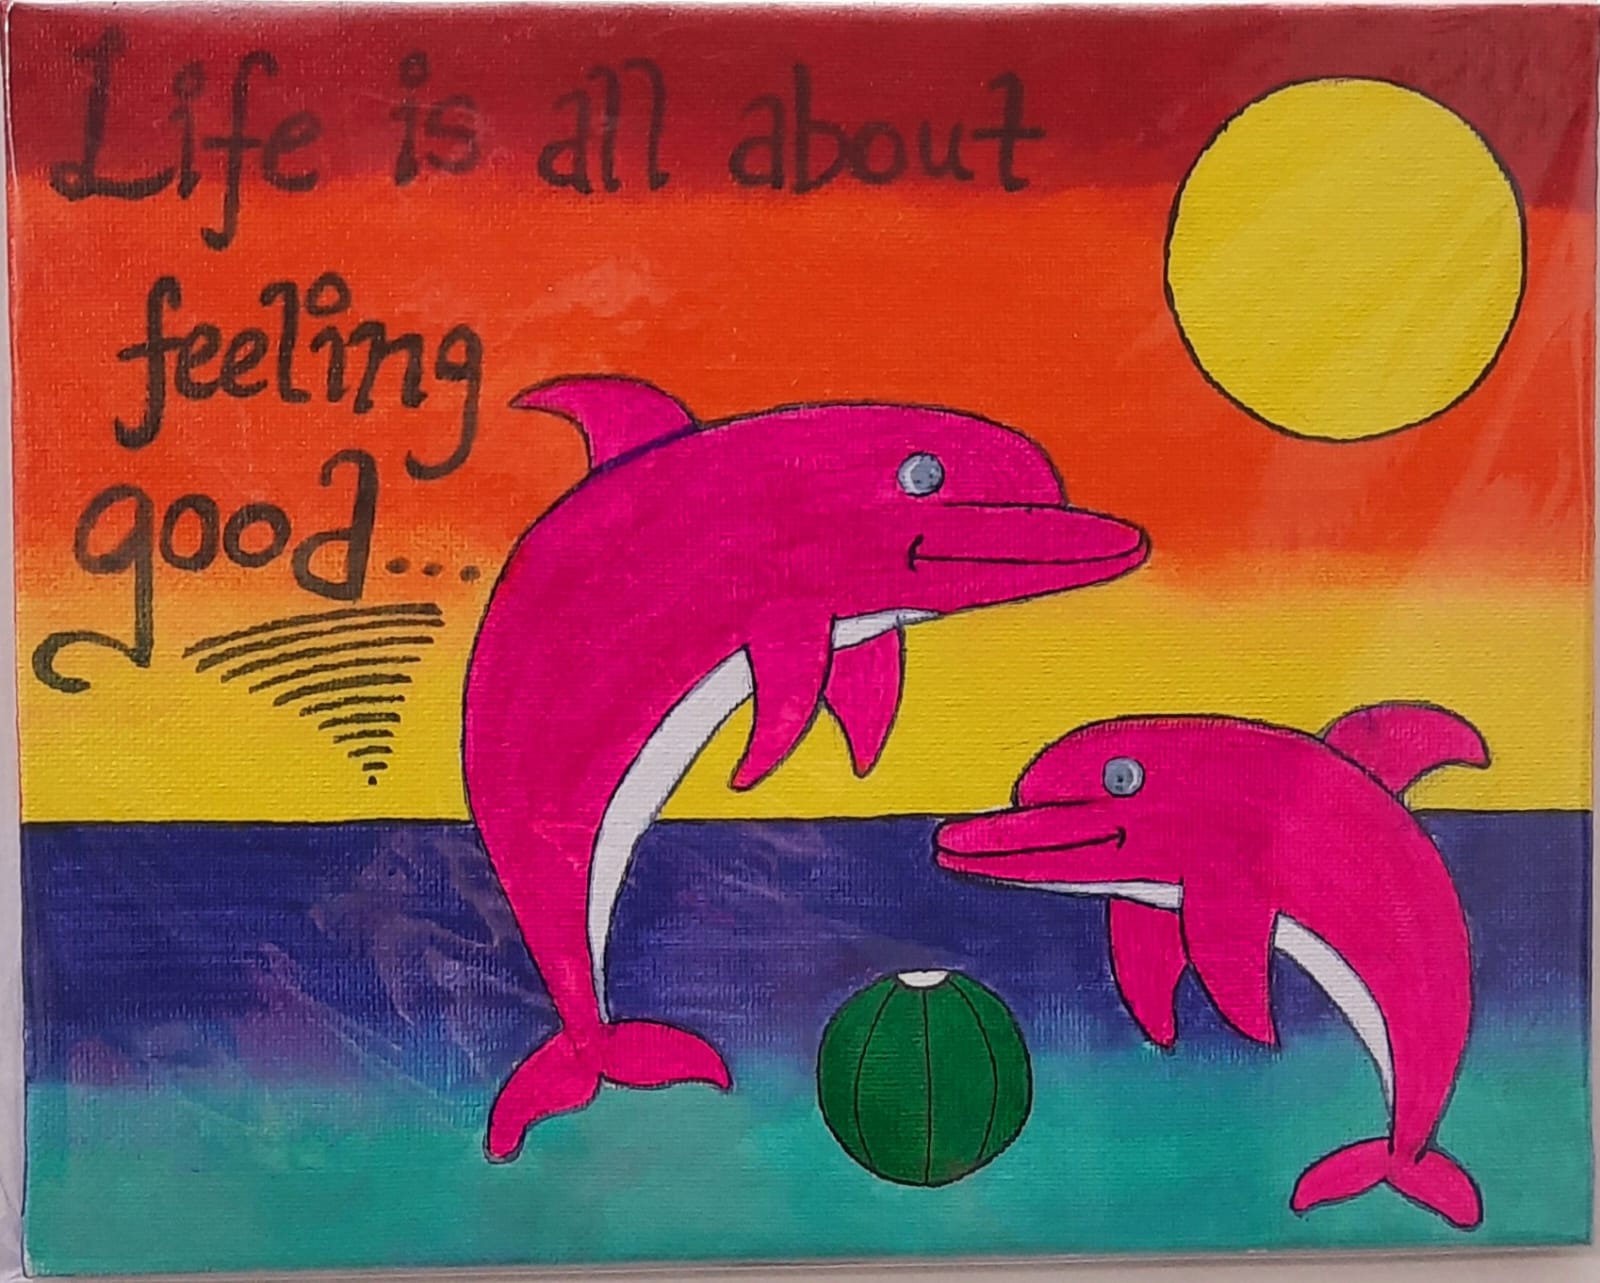 Life is all about
feeling
good...